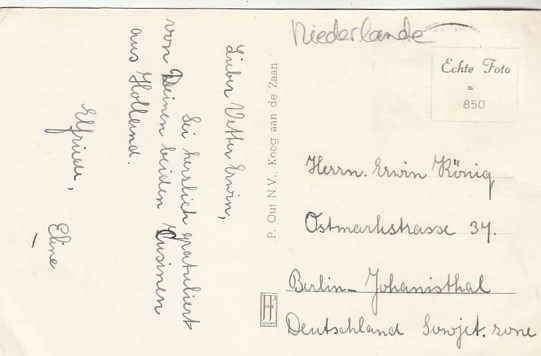 Niederlande
Echte Foto
=
850
Lieber Vetter Erwin,
Sei herrlich gratuliert
von Deinen beiden Kusinen
aus Holland.
Elfriede,
Eline
P. Out N.V., Koog aan de Zaan
Herrn. Erwin König
Ostmarkstrasse 34.
Berlin-Johanisthal
Deutschland Sowjet. zone